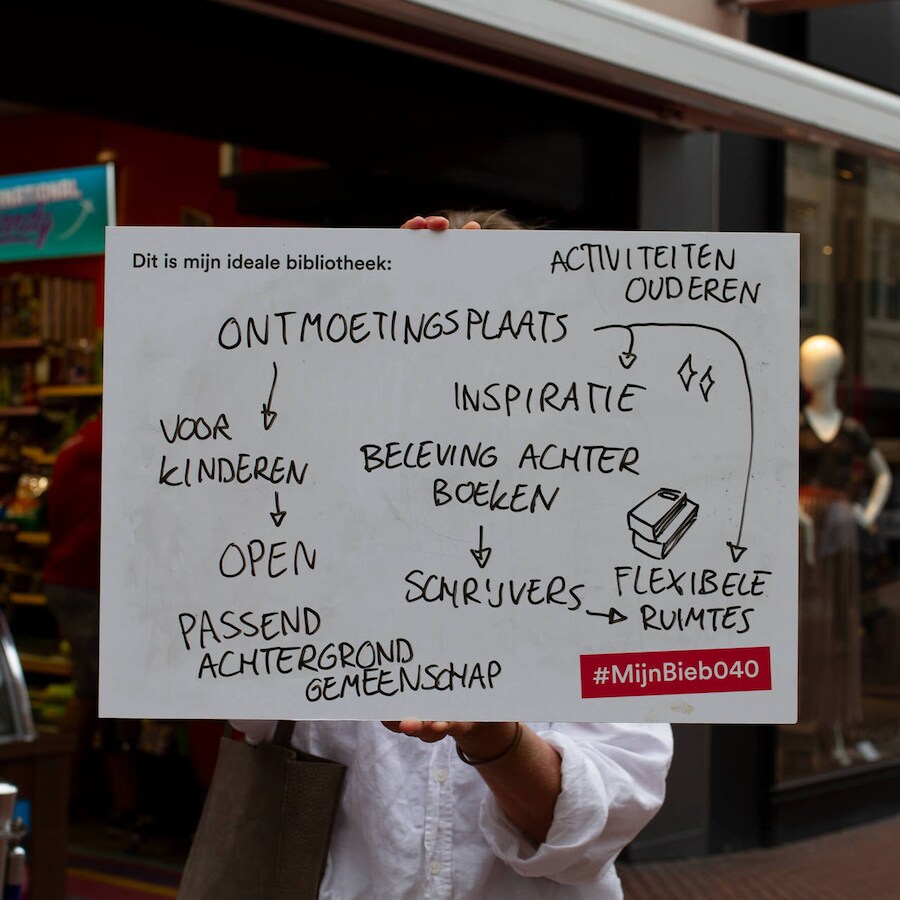 Dit is mijn ideale bibliotheek:
ACTIVITEITEN
OUDEREN
ONTMOETINGSPLAATS
INSPIRATIE
VOOR
KINDEREN
BELEVING ACHTER
BOEKEN
OPEN
SCHRIJVERS
FLEXIBELE
RUIMTES
PASSEND
ACHTERGROND
GEMEENSCHAP
#MijnBieb040